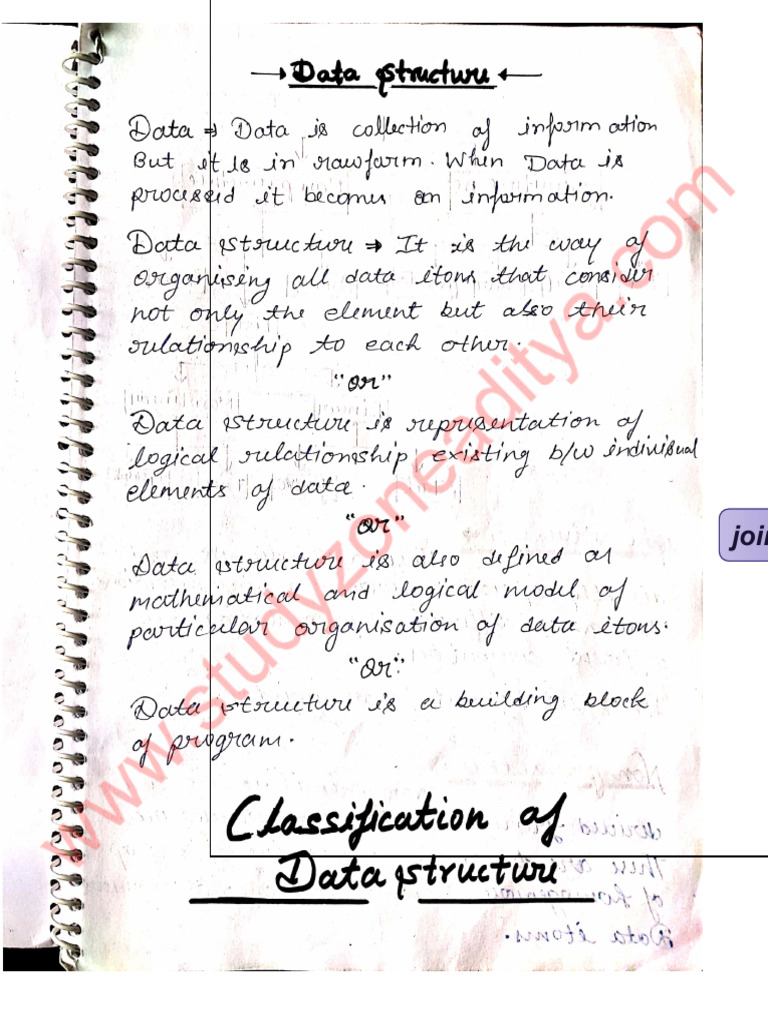 → Data structure ←
Data ⇒ Data is collection of information
But it is in rawform. When Data is
processed it becomes an information.
Data structure ⇒ It is the way of
organising all data itoms that consider
not only the element but also their
relationship to each other.
"or"
Data structure is representation of
logical relationship existing b/w indiviual
elements of data.
"or"
Data structure is also defined as
mathematical and logical model of
particular organisation of data itoms.
"or"
Data structure is a building block
of program.
Classification of
Data structure
www.studyzoneaditya.com
join
Data itoms.